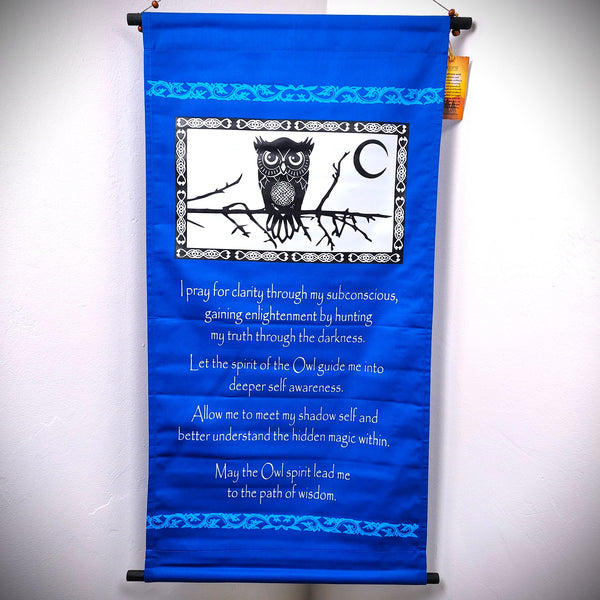 I pray for clarity through my subconscious,
gaining enlightenment by hunting
my truth through the darkness.
Let the spirit of the Owl guide me into
deeper self awareness.
Allow me to meet my shadow self and
better understand the hidden magic within.
May the Owl spirit lead me
to the path of wisdom.